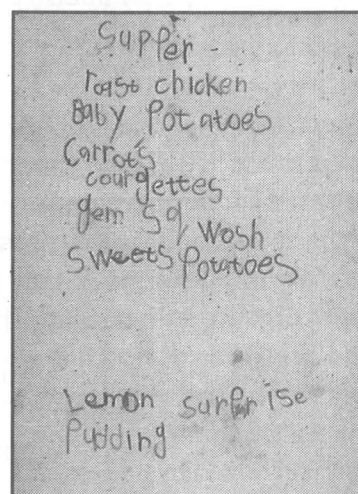 Supper
roast chicken
Baby Potatoes
Carrots
courgettes
gem Sq/wosh
Sweets Potatoes
Lemon surprise
Pudding